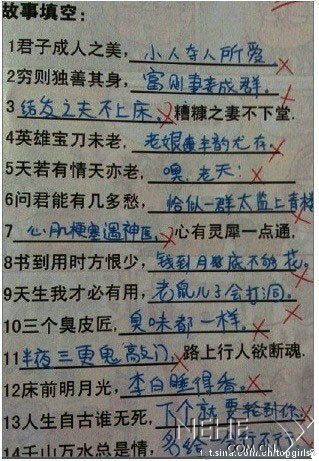 故事填空:
1君子成人之美，小人夺人所爱。
2穷则独善其身，富则妻妾成群。
3结发之夫不上床，糟糠之妻不下堂.
4英雄宝刀未老，老娘风韵尤存。
5天若有情天亦老，噢，老天！
6问君能有几多愁，恰似一群太监上青楼
7心肌梗塞遇神医，心有灵犀一点通，
8书到用时方恨少，钱到月底不够花。
9天生我才必有用，老鼠儿子会打洞。
10三个臭皮匠，臭味都一样。
11半夜三更鬼敲门，路上行人欲断魂.
12床前明月光，李白睡得香。
13人生自古谁无死，下个就要轮到你。
14千山万水总是情，多给一分行不行
t.sina.com.cn/topgirls